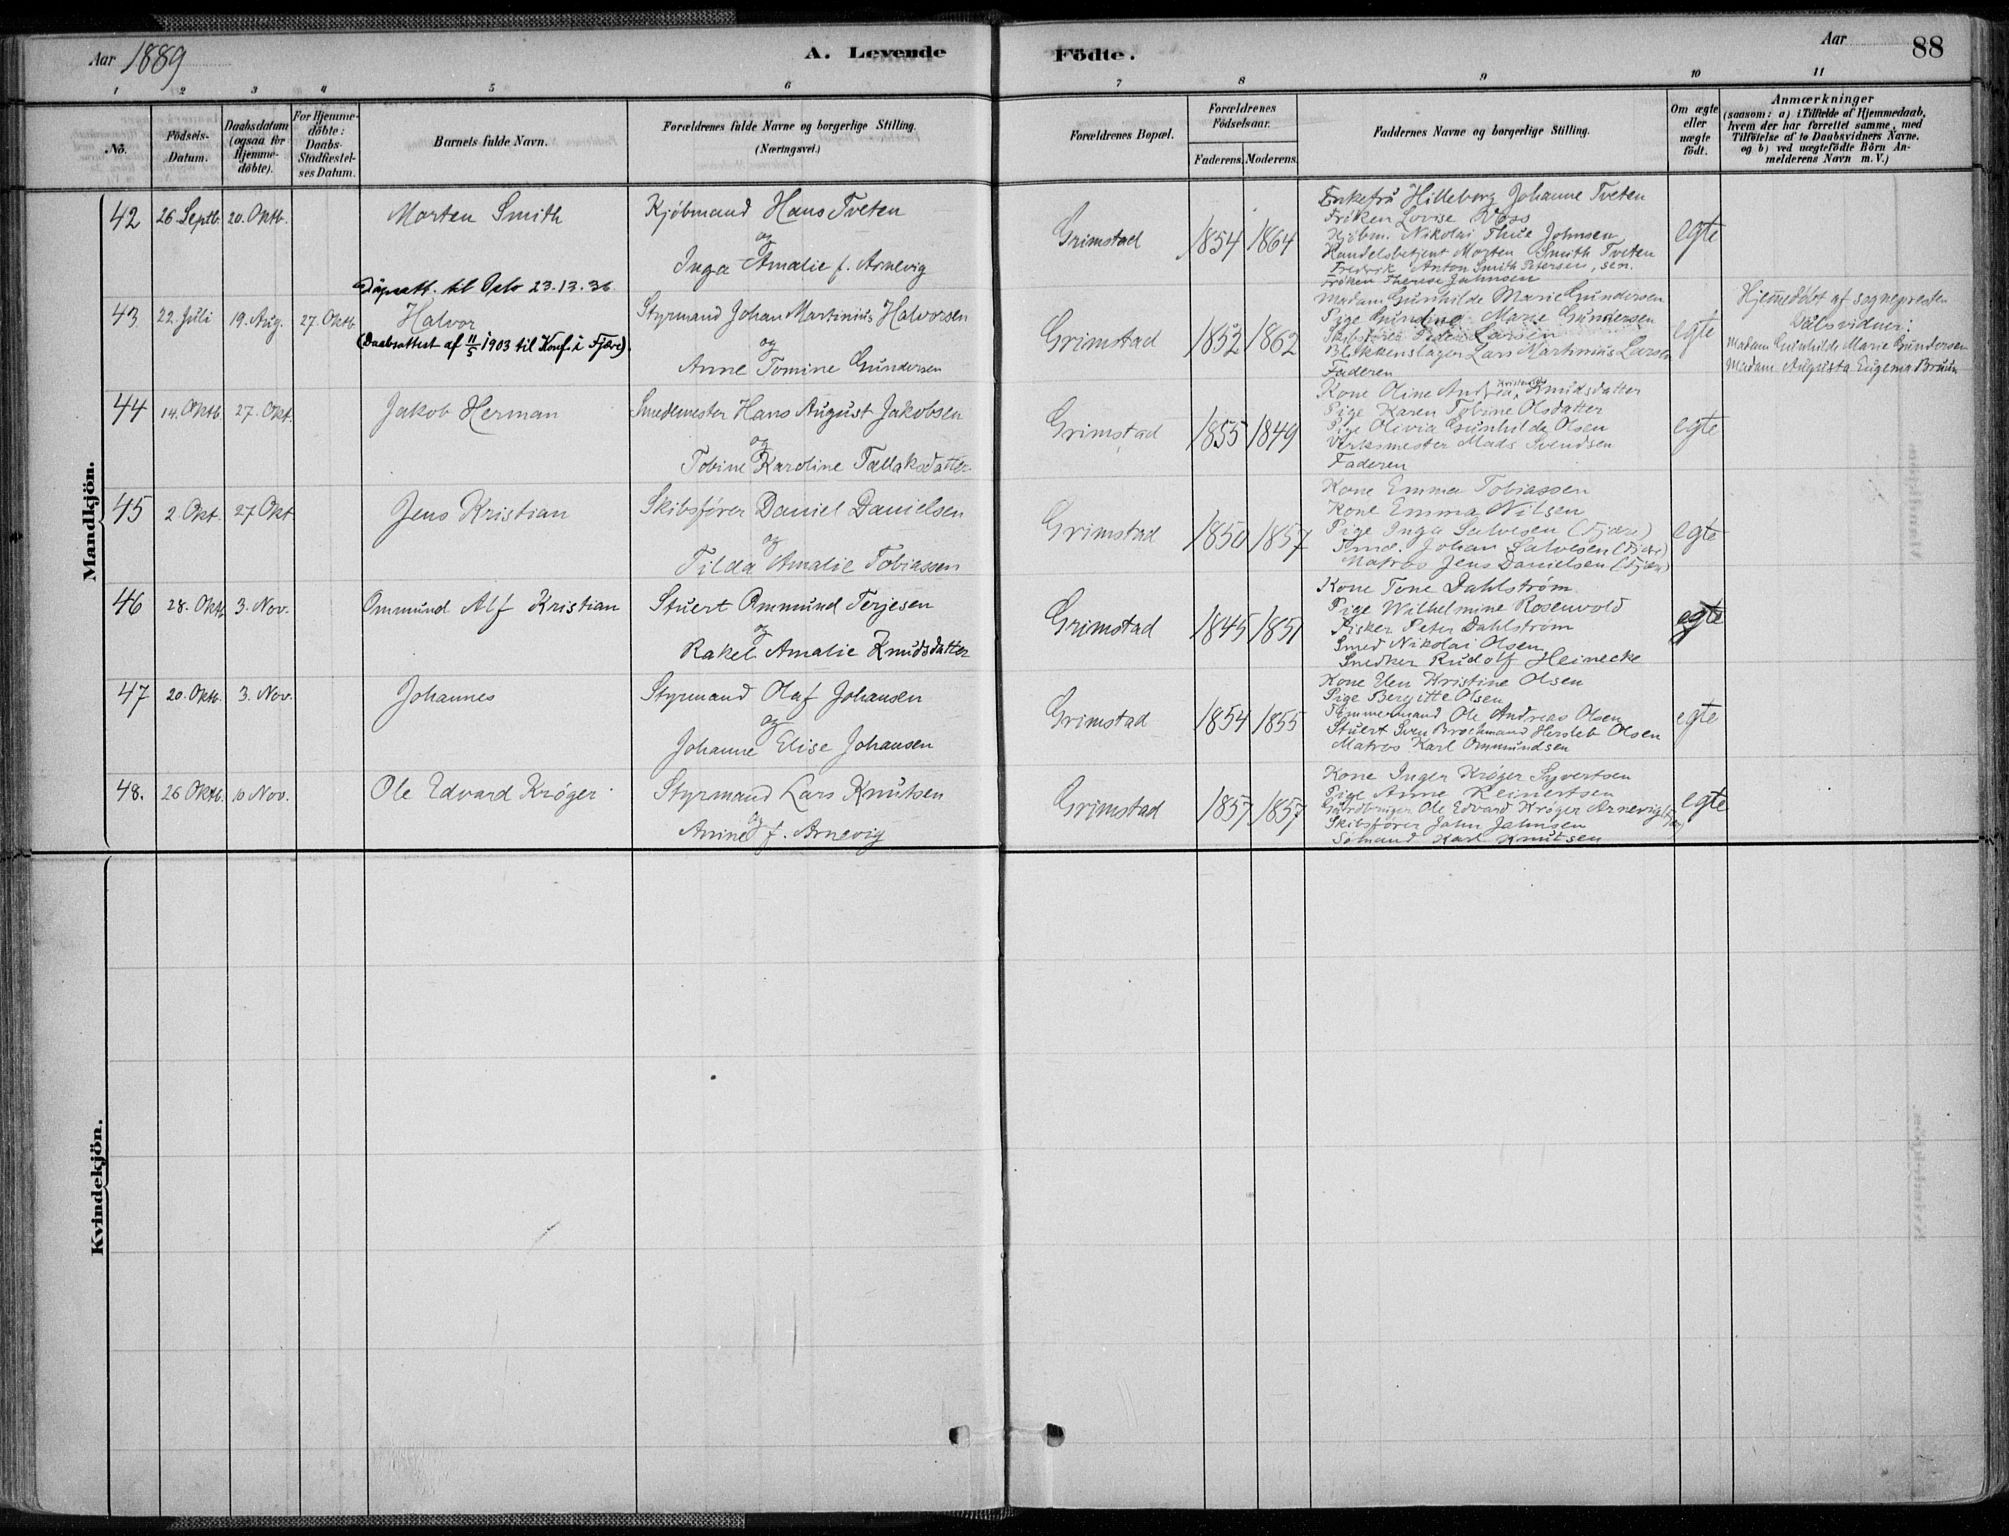 Aar 1889
A. Levende Födte.
Aar
88
1 2 3 4 5 6 7 8 9 10 11
No.
Födsels-Datum.
Daabsdatum (ogsaa for Hjemme-döbte).
For Hjemme-döbte: Daabs-Stadfæstel-ses Datum.
Barnets fulde Navn.
Forældrenes fulde Navne og borgerlige Stilling. (Næringsvei.)
Forældrenes Bopæl.
Forældrenes Födselsaar.
Faderens. Moderens.
Faddernes Navne og borgerlige Stilling.
Om ægte eller uægte födt.
Anmærkninger
(saasom: a) i Tilfælde af Hjemmedaab,
hvem der har forrettet samme, med
Tilföielse af to Daabsvidners Navne.
og b) ved uægtefödte Börn An-
melderens Navn m. V.)
Mandkjön.
42 26 Septb. 20. Oktb. Morten Smith
Kjöbmand Hans Tveten
og
Inga Amalie f. Arnevig
Grimstad 1854 1864
Enkefru Hilleborg Johanne Tveten
Fröken Lovise Voss
Kjöbm. Nikolai Thue Johnsen
Handelsbetjent Morten Smith Tveten
Fredrik Anton Smith Petersen, sen.
Fröken Therese Jahnsen
egte
Dåpsatt. til Oslo 23.13.36
43 22. Juli 19. Aug. 27. Oktb Halvor
(Daabsattest af 11/5 1903 til Konf. i Fjære).
Styrmand Johan Martinius Halvorsen
og
Anne Tomine Gundersen
Grimstad 1852 1862
Madam Gunhilde Marie Gundersen
Pige Gundine Marie Gundersen
Skibsförer Peder Larsen
Blikkenslager Lars Martinius Larsen
Faderen
egte
Hjemmedöbt af sognepresten
Dåbsvidner:
Madam Gunhilde Marie Gundersen
Madam Augusta Eugenia Bruun
44 14. Oktb 27. Okt. Jakob Herman
Smedemester Hans August Jakobsen
og
Tobine Karoline Tallaksdatter
Grimstad 1855 1849
Kone Oline Andrea Knudsdatter
Pige Karen Tobine Olsdatter
Pige Olivia Gunhilde Olsen
Verksmester Mads Svendsen
Faderen
egte
45 2. Okt. 27 Okt Jens Kristian
Skibsförer Daniel Danielsen
og
Tilda Amalie Tobiassen
Grimstad 1850 1857
Kone Emma Tobiassen
Kone Emma Nilsen
Pige Inga Salvesen (Fjære)
Tömd. Johan Salvesen (Fjære)
Matros Jens Danielsen (Fjære)
egte
46 28. Okt. 3. Nov. Ommund Alf Kristian
Stuert Ommund Terjesen
og
Rakel Amalie Knudsdatter
Grimstad 1845 1851
Kone Tone Dahlström
Pige Wilhelmine Rosenvold
Fisker Peter Dahlström
Smed Nikolai Olsen
Snedker Rudolf Heinecke
egte
47 20. Oktb. 3. Nov. Johannes
Styrmand Olaf Johansen
og
Johanne Elise Johansen
Grimstad 1854 1855
Kone Elen Kristine Olsen
Pige Bergitte Olsen
Tömmermand Ole Andreas Olsen
Stuert Sven Brochmand Hersleb Olsen
Matros Karl Ommundsen
egte
48. 26 Oktb. 10 Nov. Ole Edvard Kröger
Styrmand Lars Knutsen
og
Anine f. Arnevig
Grimstad 1857 1857
Kone Inger Kröger Syvertsen
Pige Anne Reinertsen
Gårdbruger Ole Edvard Kröger Arnevig
Skibsförer John Jahnsen
Sömand Karl Knutsen
egte
Kvindekjön.